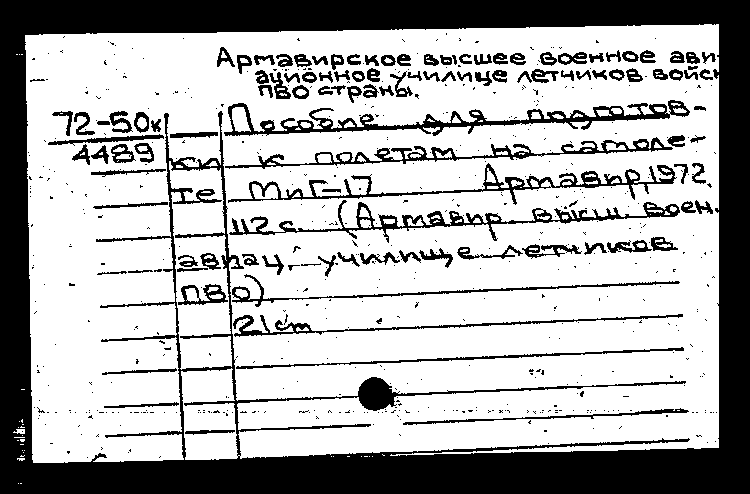 Армавирское высшее военное ави-
ационное училище летчиков войск
ПВО страны.
72-50к Пособие для подготов-
4489 ки к полетам на самоле-
те МиГ-17 Армавир, 1972.
112 с. (Армавир. высш. воен.
авиац. училище летчиков
ПВО).
21 cm